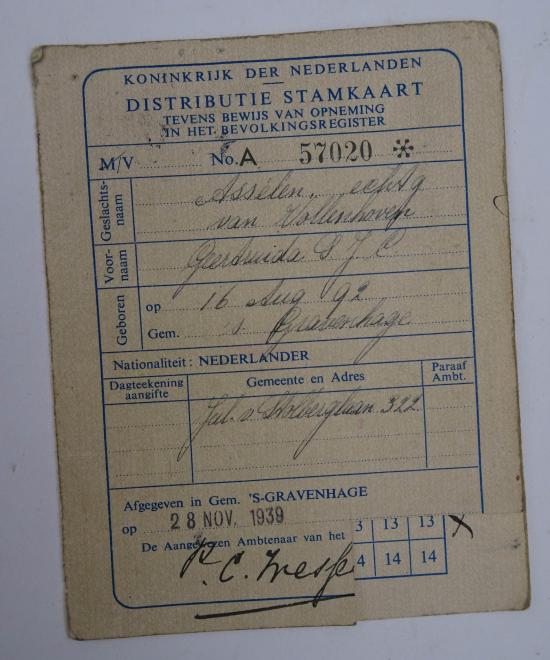 KONINKRIJK DER NEDERLANDEN
DISTRIBUTIE STAMKAART
TEVENS BEWIJS VAN OPNEMING
IN HET BEVOLKINGSREGISTER
M/V No. A 57020 *
Geslachts-
naam
Asselen, echtg
van Vollenhoven
Voor-
naam
Geertruida S J C
Geboren
op 16 Aug 92
Gem. 's Gravenhage
Nationaliteit: NEDERLANDER
Dagteekening
aangifte
Gemeente en Adres
Paraaf
Ambt.
Jul. v. Stolberglaan 322
Afgegeven in Gem. 'S-GRAVENHAGE
op 28 NOV. 1939
De Aangewezen Ambtenaar van het
3 13 13 X
4 14 14